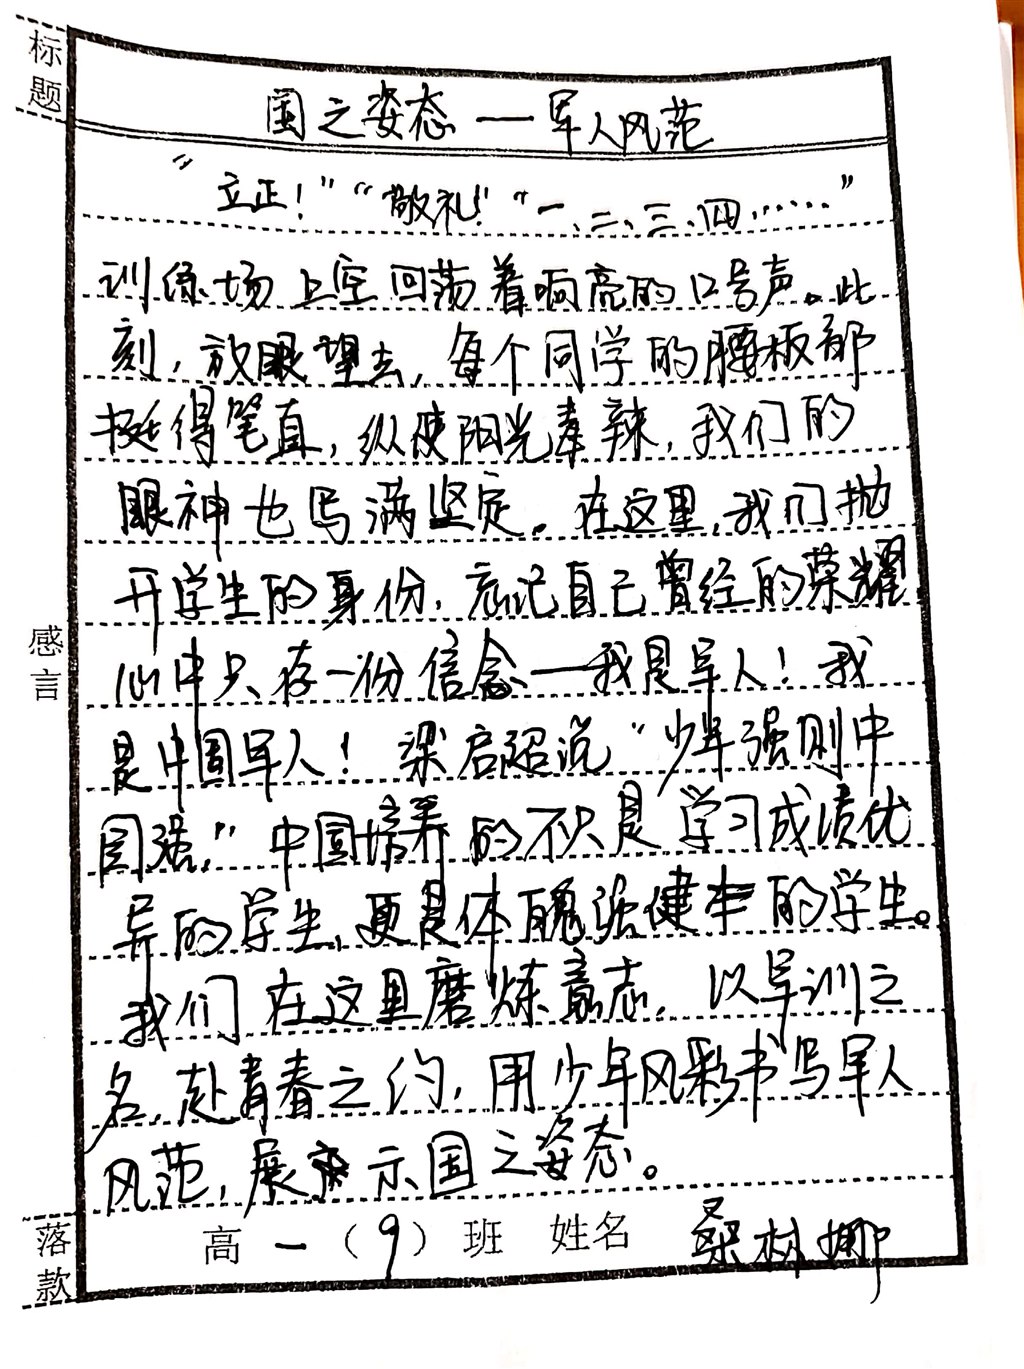 标题
国之姿态——军人风范
“立正！”“敬礼！”“一、二、三、四……”
训练场上空回荡着响亮的口号声。此
刻，放眼望去，每个同学的腰板都
挺得笔直，纵使阳光毒辣，我们的
眼神也写满坚定。在这里，我们抛
开学生的身份，忘记自己曾经的荣耀，
心中只存一份信念——我是军人！我
是中国军人！梁启超说“少年强则中
国强，”中国培养的不只是学习成绩优
异的学生，更是体魄强健的学生。
我们在这里磨炼意志，以军训之
名，赴青春之约，用少年风彩书写军人
风范，展示国之姿态。
感言
落款
高一（9）班 姓名 桑林娜